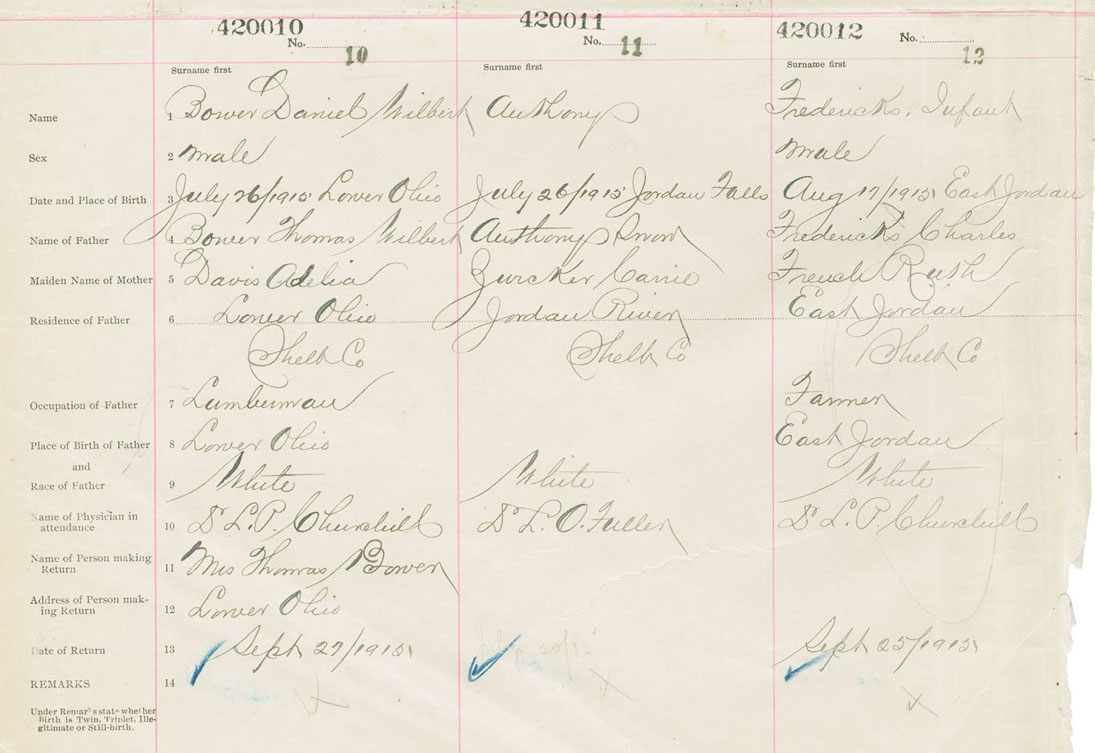 420010 420011 420012
No. 10 No. 11 No. 12
Surname first Surname first Surname first
Name 1 Bower Daniel Wilbert Anthony Fredericks, Infant
Sex 2 Male Male
Date and Place of Birth 3 July 26/1915 Lower Ohio July 26/1915 Jordan Falls Aug 17/1915 East Jordan
Name of Father 4 Bower Thomas Wilbert Anthony Fredericks Charles
Maiden Name of Mother 5 Davis Adelia Zwicker Carrie French Ruth
Residence of Father 6 Lower Ohio Jordan River East Jordan
Shelb Co Shelb Co Shelb Co
Occupation of Father 7 Lumberman Farmer
Place of Birth of Father 8 Lower Ohio East Jordan
and
Race of Father 9 White White White
Name of Physician in
attendance 10 Dr L. P. Churchill Dr L. O. Fuller Dr L. P. Churchill
Name of Person making
Return 11 Mrs Thomas Bower
Address of Person mak-
ing Return 12 Lower Ohio
Date of Return 13 Sept 27/1915 Sept 25/1915
REMARKS 14
Under Remarks state whether
Birth is Twin, Triplet, Ille-
gitimate or Still-birth.